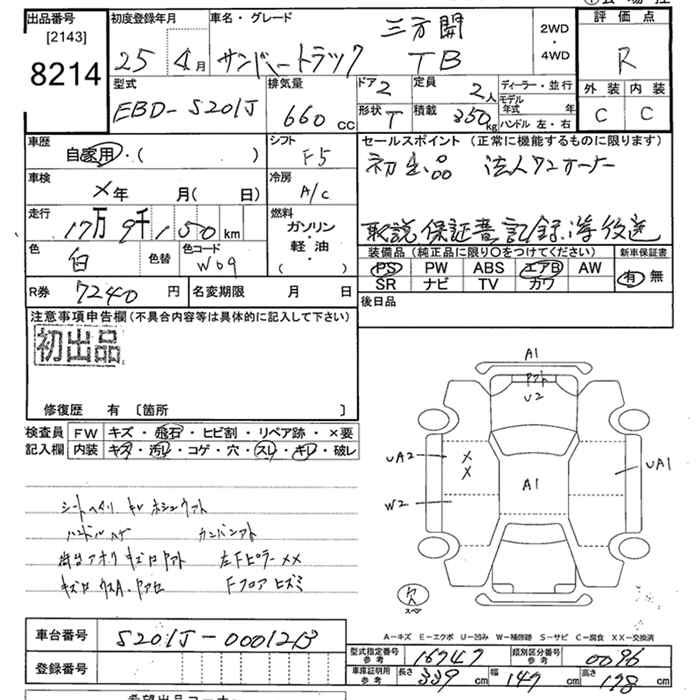 出品番号
[2143]
8214
初度登録年月
25年4月
車名・グレード
サンバートラック
三方開
TB
2WD
・
4WD
評価点
R
外装 内装
C C
型式
EBD-S201J
排気量
660 CC
ドア 2
定員 2人
形状 T
積載 350kg
ディーラー・並行
モデル年式 年
ハンドル 左・右
車歴
自家用・( )
シフト
F5
車検
×年 月( 日)
冷房
A/C
走行
17万9千150km
燃料
ガソリン
・
軽油
・
( )
色
白
色替
色コード
W09
R券 7240円
名変期限 月 日
セールスポイント (正常に機能するものに限ります)
初出品 法人ワンオーナー
取説 保証書 記録簿後送
装備品 (純正品に限り○をつけてください)
PS PW ABS エアB AW
SR ナビ TV カワ
新車保証書
有・無
後日品
注意事項申告欄(不具合内容等は具体的に記入して下さい)
初出品
修復歴 有 [箇所 ]
検査員記入欄
FW キズ・飛石・ヒビ割・リペア跡・×要
内装 キズ・汚レ・コゲ・穴・スレ・キレ・破レ
ハンドルスレ
左Fピラー××
Fフロアヒズミ
A1
U2
UA2
×
×
A1
UA1
W2
欠
スペア
A-キズ E-エクボ U-凹み W-補修跡 S-サビ C-腐食 XX-交換済
車台番号
S201J-0001213
登録番号
型式指定番号 参考 16747
類別区分番号 参考 0096
車庫証明用 参考 長さ 339cm 幅 147cm 高さ 178cm